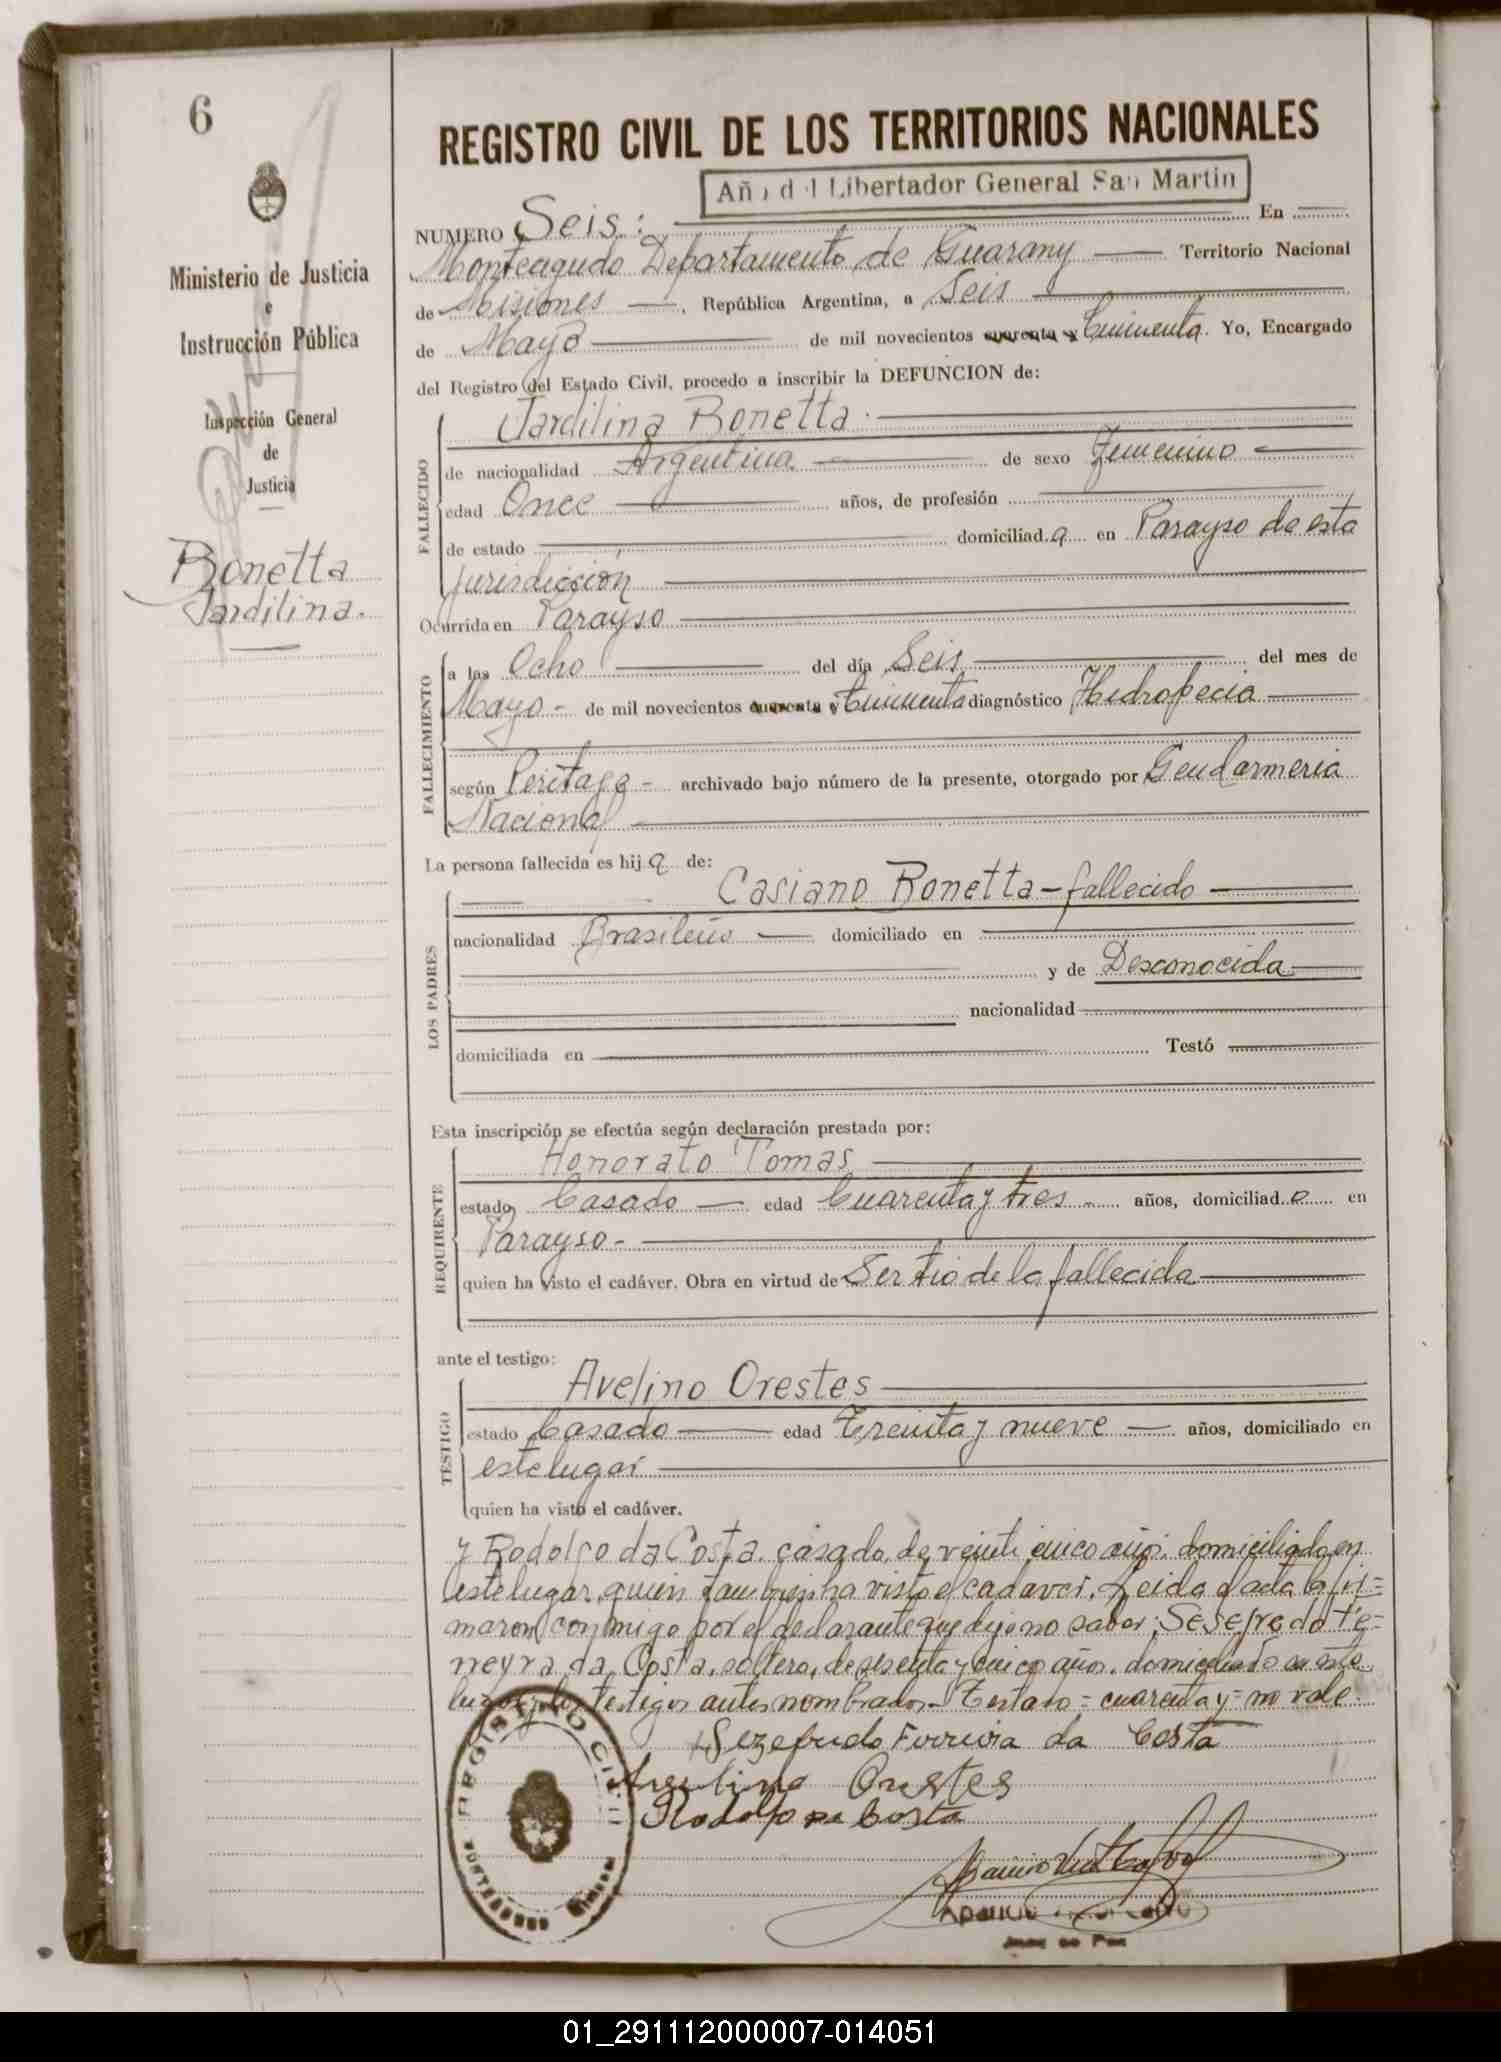 6
Ministerio de Justicia
e
Instrucción Pública
Inspección General
de
Justicia
Bonetta
Jardilina.
REGISTRO CIVIL DE LOS TERRITORIOS NACIONALES
Año del Libertador General San Martin
NUMERO Seis: En
Monteagudo Departamento de Guarany Territorio Nacional
de Misiones, República Argentina, a Seis
de Mayo de mil novecientos cuarenta y Cincuenta. Yo, Encargado
del Registro del Estado Civil, procedo a inscribir la DEFUNCION de:
FALLECIDO
Jardilina Bonetta.
de nacionalidad Argentina de sexo Femenino
edad Once años, de profesión
de estado domiciliad a en Parayso de esta
jurisdicción
Ocurrida en Parayso
FALLECIMIENTO
a las Ocho del día Seis del mes de
Mayo - de mil novecientos cuarenta y Cincuenta diagnóstico Hidropecia
según Peritage - archivado bajo número de la presente, otorgado por Gendarmeria
Nacional
La persona fallecida es hij a de:
LOS PADRES
Casiano Bonetta - fallecido
nacionalidad Brasileño domiciliado en
y de Desconocida
nacionalidad
domiciliada en Testó
Esta inscripción se efectúa según declaración prestada por:
REQUIRENTE
Honorato Tomas
estado Casado edad Cuarenta y tres años, domiciliad o en
Parayso -
quien ha visto el cadáver. Obra en virtud de Ser tio de la fallecida
ante el testigo:
TESTIGO
Avelino Orestes
estado Casado edad Treinta y nueve años, domiciliado en
este lugar
quien ha visto el cadáver.
y Rodolfo da Costa, casado, de veinti cinco años domiciliado en
este lugar, quien tambien ha visto el cadaver. Leida el acta la fir=
maron conmigo por el declarante que dijo no saber; Sesefredo
da Costa, soltero, de sesenta y cinco años, domiciliado en este
lugar y los testigos antes nombrados - Testado = cuarenta y = no vale
Sezefredo Ferreira da Costa
Avelino Orestes
Rodolfo da Costa
REGISTRO CIVIL
MONTEAGUDO
Juez de Paz
01_291112000007-014051